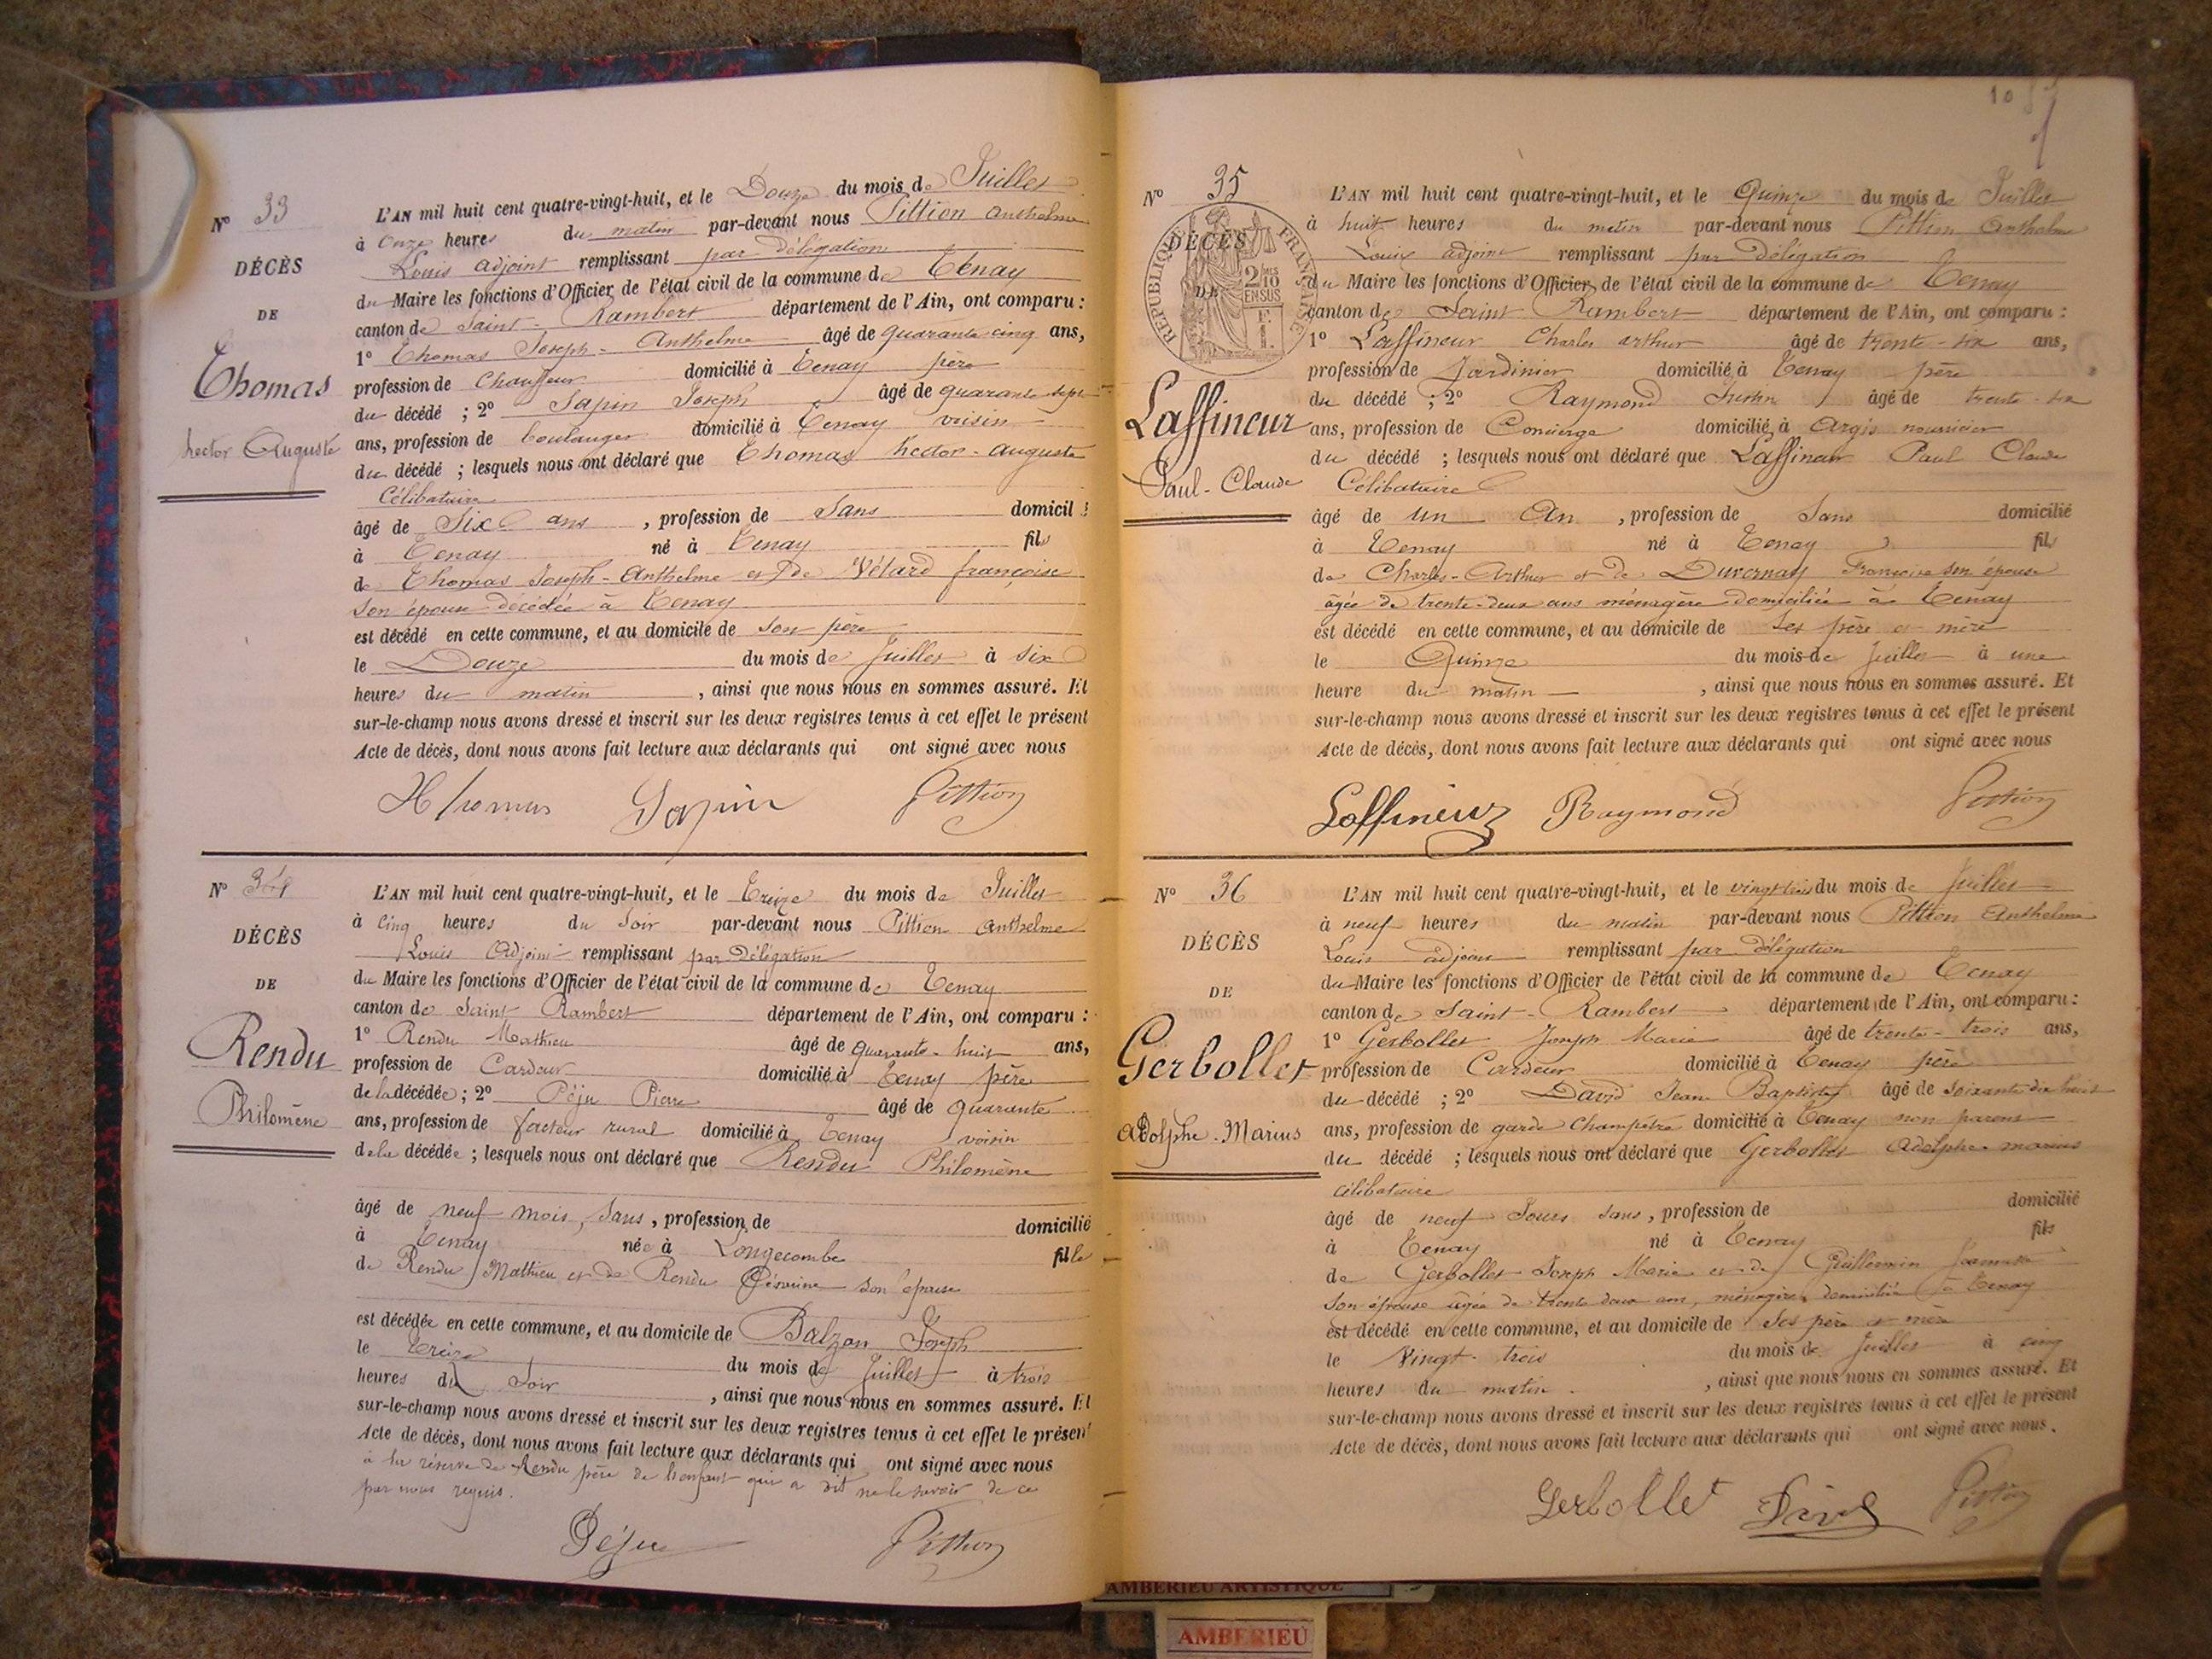 N° 33
DÉCÈS
DE
Thomas
hector Auguste
L'AN mil huit cent quatre-vingt-huit, et le Douze du mois de Juillet
à Onze heures du matin par-devant nous Pittion Anthelme
Louis adjoint remplissant par délégation
du Maire les fonctions d'Officier de l'état civil de la commune de Tenay
canton de Saint-Rambert département de l'Ain, ont comparu :
1° Thomas Joseph-Anthelme âgé de quarante cinq ans,
profession de Chauffeur domicilié à Tenay père
du décédé ; 2° Sapin Joseph âgé de quarante sept
ans, profession de boulanger domicilié à Tenay voisin
du décédé ; lesquels nous ont déclaré que Thomas hector-auguste
Célibataire
âgé de Six ans , profession de Sans domicilié
à Tenay né à Tenay fils
de Thomas Joseph-Anthelme et de Vétard françoise
son épouse décédée à Tenay
est décédé en cette commune, et au domicile de son père
le Douze du mois de juillet à six
heures du matin , ainsi que nous nous en sommes assuré. Et
sur-le-champ nous avons dressé et inscrit sur les deux registres tenus à cet effet le présent
Acte de décès, dont nous avons fait lecture aux déclarants qui ont signé avec nous
Thomas Sapin Pittion
N° 34
DÉCÈS
DE
Rendu
Philomène
L'AN mil huit cent quatre-vingt-huit, et le Treize du mois de Juillet
à cinq heures du Soir par-devant nous Pittion Anthelme
Louis Adjoint remplissant par délégation
du Maire les fonctions d'Officier de l'état civil de la commune de Tenay
canton de Saint Rambert département de l'Ain, ont comparu :
1° Rendu Mathieu âgé de quarante-huit ans,
profession de Cardeur domicilié à Tenay père
de la décédée ; 2° Péju Pierre âgé de quarante
ans, profession de facteur rural domicilié à Tenay voisin
de la décédée ; lesquels nous ont déclaré que Rendu Philomène
âgé de neuf mois, Sans, profession de domicilié
à Tenay née à Longecombe fille
de Rendu Mathieu et de Rendu son épouse
est décédée en cette commune, et au domicile de Balzan Joseph
le treize du mois de Juillet à trois
heures du Soir , ainsi que nous nous en sommes assuré. Et
sur-le-champ nous avons dressé et inscrit sur les deux registres tenus à cet effet le présent
Acte de décès, dont nous avons fait lecture aux déclarants qui ont signé avec nous
à la réserve de Rendu père de l'enfant qui a dit ne le savoir de ce
par nous requis.
Péju Pittion
10
N° 35
RÉPUBLIQUE FRANÇAISE
2/10 EN SUS
DÉCÈS
DE
Laffineur
Paul-Claude
L'AN mil huit cent quatre-vingt-huit, et le Quinze du mois de Juillet
à huit heures du matin par-devant nous Pittion Anthelme
Louis adjoint remplissant par délégation
du Maire les fonctions d'Officier de l'état civil de la commune de Tenay
canton de Saint Rambert département de l'Ain, ont comparu :
1° Laffineur Charles arthur âgé de trente-six ans,
profession de Jardinier domicilié à Tenay père
du décédé ; 2° Raymond Justin âgé de trente-six
ans, profession de Concierge domicilié à Argis nourricier
du décédé ; lesquels nous ont déclaré que Laffineur Paul Claude
Célibataire
âgé de Un An , profession de Sans domicilié
à Tenay né à Tenay fils
de Charles-Arthur et de Duvernay Françoise son épouse
âgée de trente-deux ans ménagère domiciliée à Tenay
est décédé en cette commune, et au domicile de ses père et mère
le Quinze du mois de juillet à une
heure du matin , ainsi que nous nous en sommes assuré. Et
sur-le-champ nous avons dressé et inscrit sur les deux registres tenus à cet effet le présent
Acte de décès, dont nous avons fait lecture aux déclarants qui ont signé avec nous
Laffineur Raymond Pittion
N° 36
DÉCÈS
DE
Gerbollet
Adolphe-Marius
L'AN mil huit cent quatre-vingt-huit, et le vingt trois du mois de juillet
à neuf heures du matin par-devant nous Pittion Anthelme
Louis adjoint remplissant par délégation
du Maire les fonctions d'Officier de l'état civil de la commune de Tenay
canton de Saint-Rambert département de l'Ain, ont comparu :
1° Gerbollet Joseph Marie âgé de trente-trois ans,
profession de Cardeur domicilié à Tenay père
du décédé ; 2° David Jean Baptiste âgé de soixante dix huit
ans, profession de garde Champêtre domicilié à Tenay non parent
du décédé ; lesquels nous ont déclaré que Gerbollet Adolphe marius
célibataire
âgé de neuf Jours sans, profession de domicilié
à Tenay né à Tenay fils
de Gerbollet Joseph Marie et de Guillermin
son épouse âgée de trente deux ans, ménagère domiciliée à Tenay
est décédé en cette commune, et au domicile de ses père et mère
le Vingt-trois du mois de juillet à cinq
heures du matin , ainsi que nous nous en sommes assuré. Et
sur-le-champ nous avons dressé et inscrit sur les deux registres tenus à cet effet le présent
Acte de décès, dont nous avons fait lecture aux déclarants qui ont signé avec nous.
Gerbollet David Pittion
AMBERIEU ARTISTIQUE
AMBERIEU